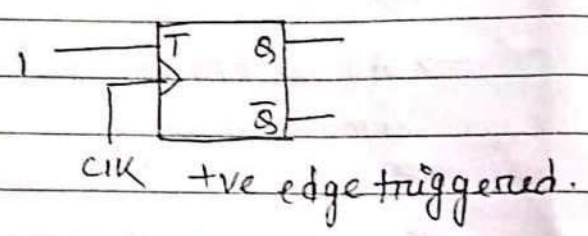 1 T Q
Q̅
CIK +ve edge triggered.